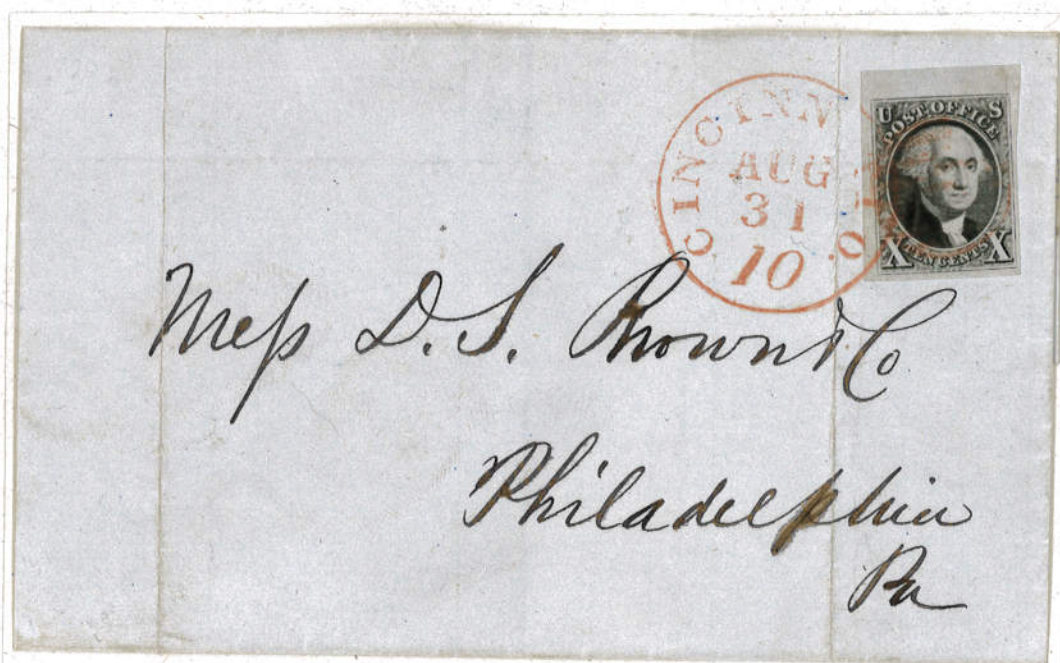 CINCINN O.
AUG
31
10
U S
POST OFFICE
X TEN CENTS X
Mess D. S. Brown & Co
Philadelphia
Pa